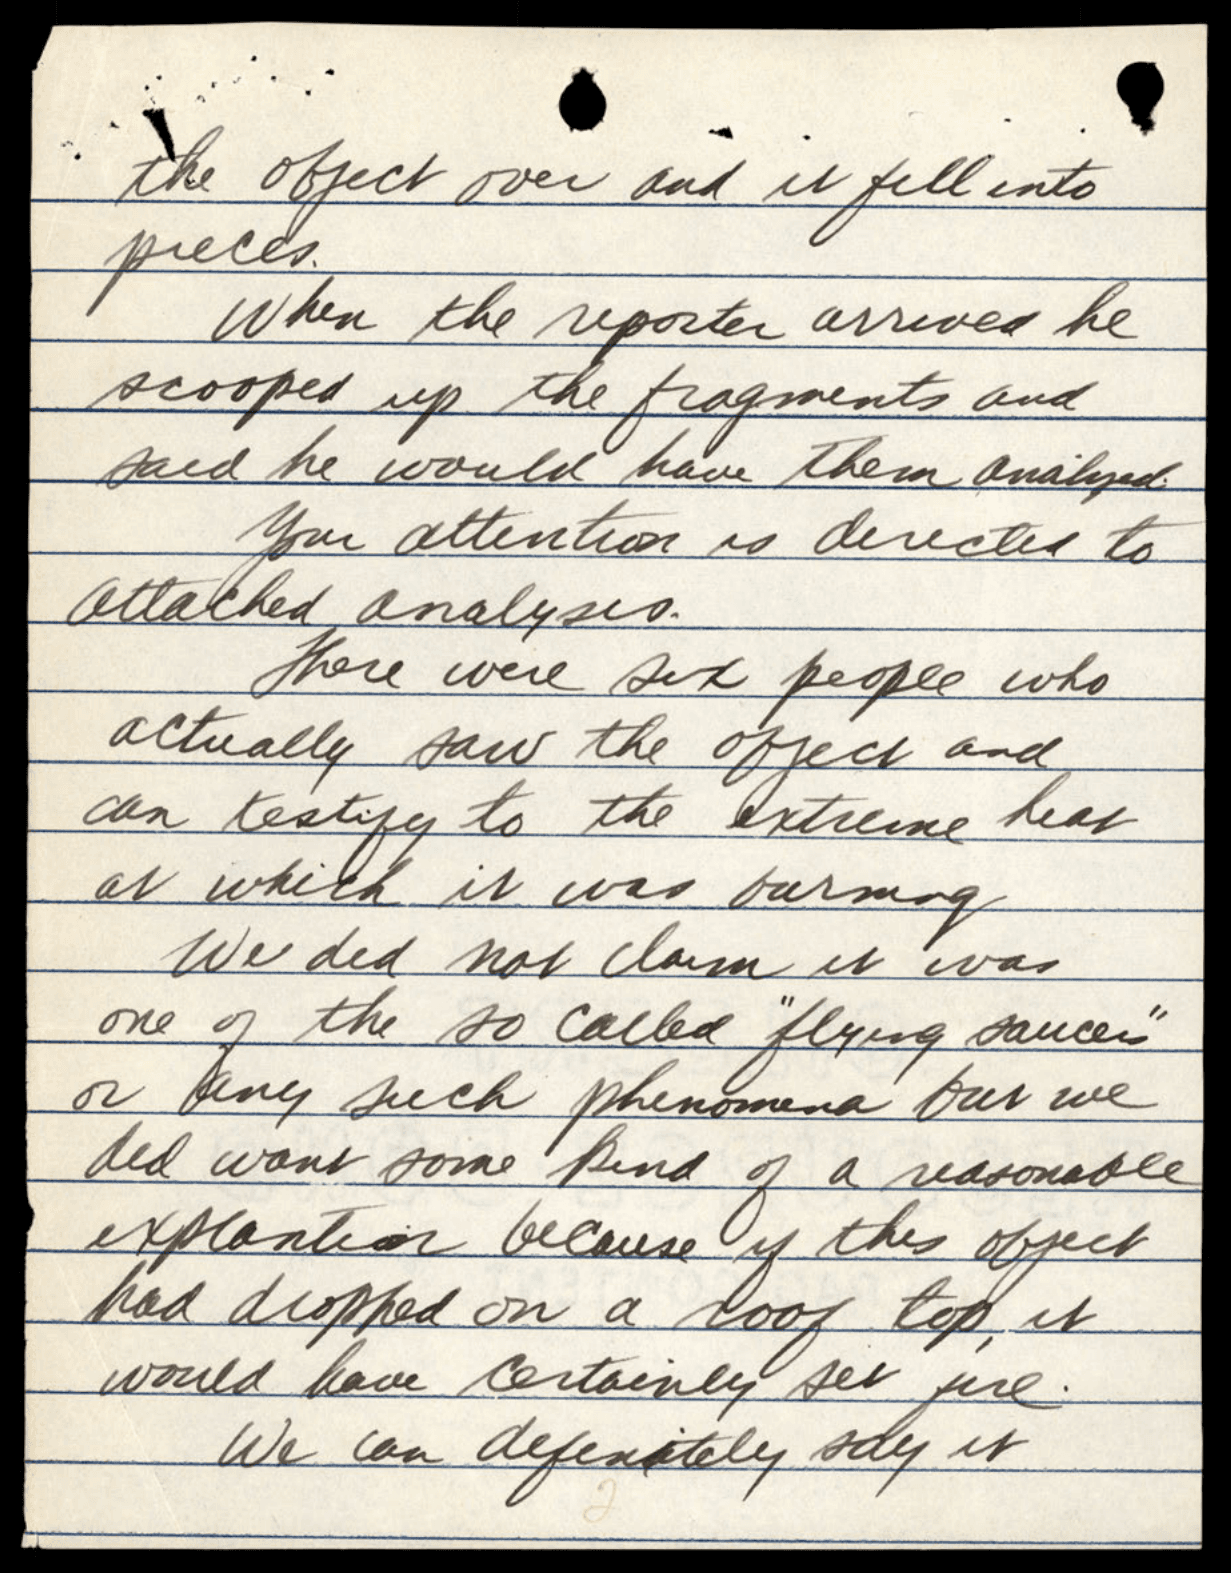 the object over and it fell into
pieces.
When the reporter arrived he
scooped up the fragments and
said he would have them analyzed.
Your attention is directed to
attached analysis.
There were six people who
actually saw the object and
can testify to the extreme heat
at which it was burning
We did not claim it was
one of the so called "flying saucers"
or any such phenomena but we
did want some kind of a reasonable
explantion because if this object
had dropped on a roof top, it
would have certainly set fire.
We can definitely say it
2